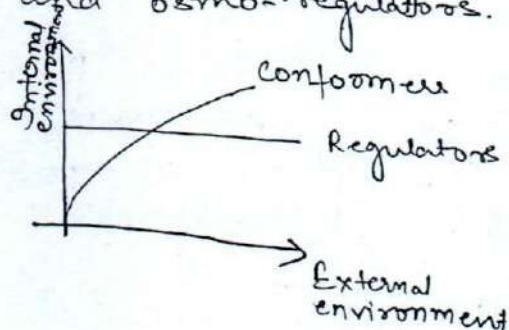 and osmo-regulators.
Internal
environment
Conformers
Regulators
External
environment